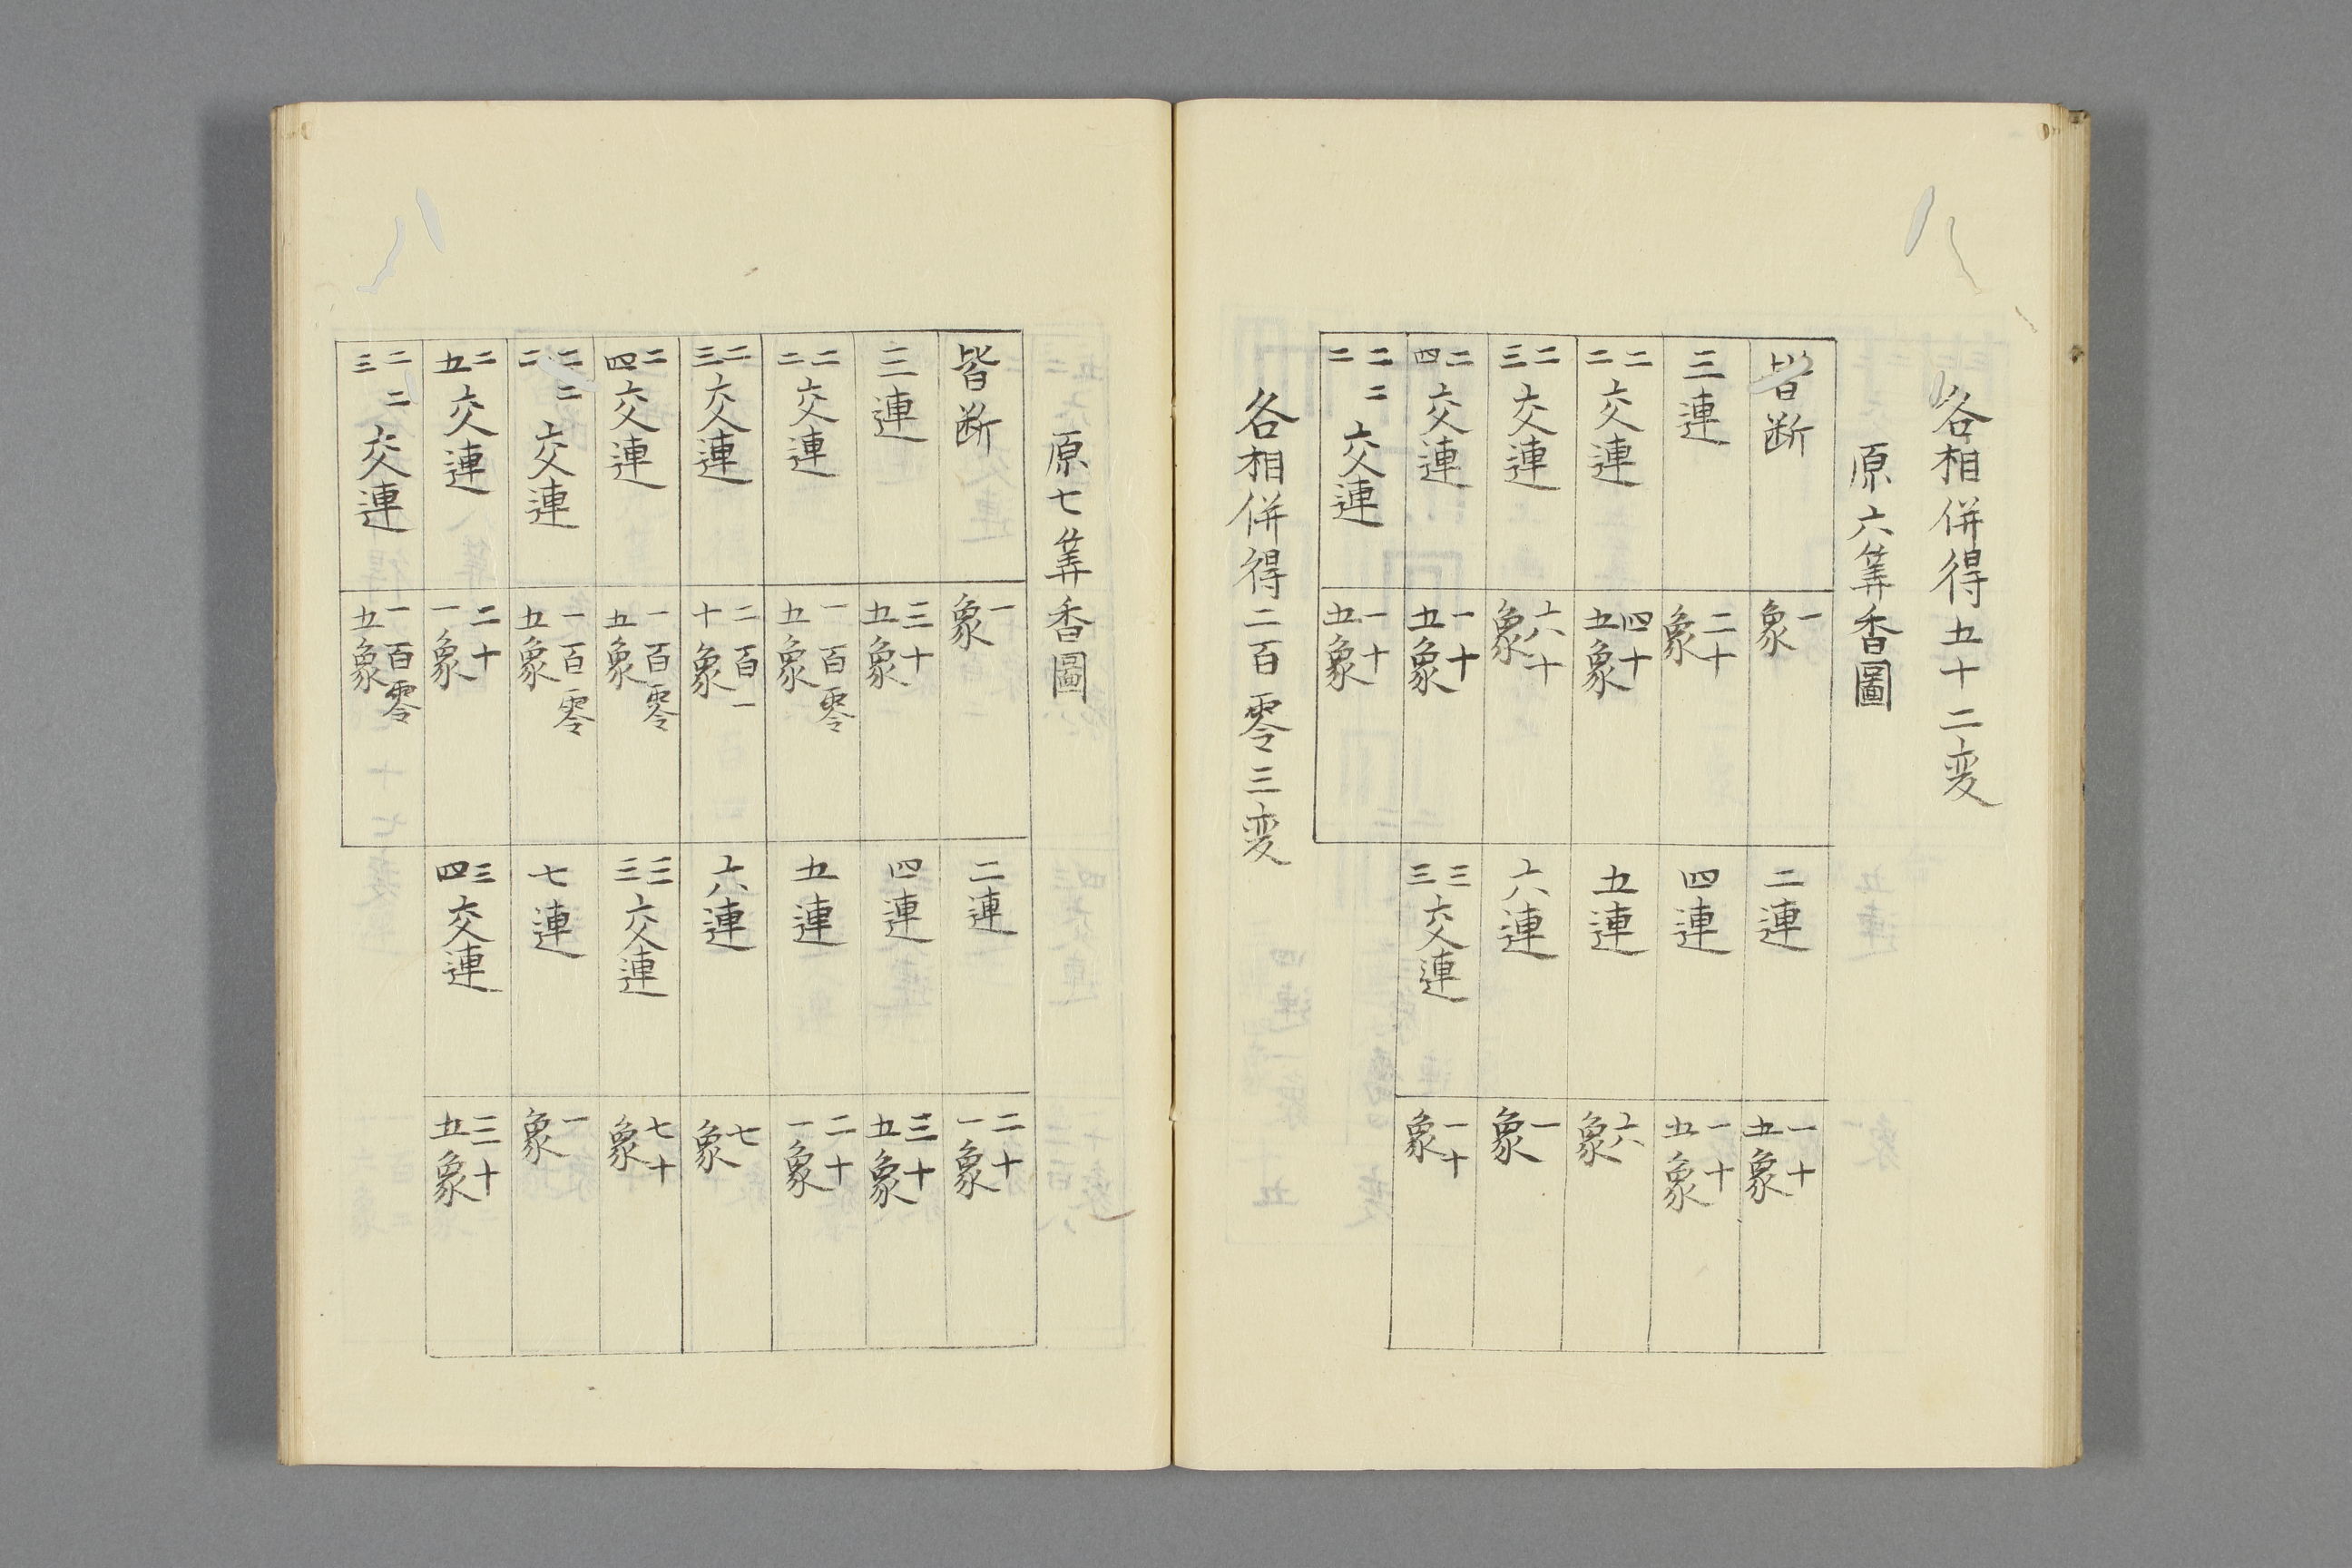 各相併得五十二変
原六筭香圖
皆断 一象 二連 一十五象
三連 二十象 四連 一十五象
二二交連 四十五象 五連 六象
二三交連 六十象 六連 一象
二四交連 一十五象 三三交連 一十象
二二二交連 一十五象
各相併得二百零三変
原七筭香圖
皆断 一象 二連 二十一象
三連 三十五象 四連 三十五象
二二交連 一百零五象 五連 二十一象
二三交連 二百一十象 六連 七象
二四交連 一百零五象 三三交連 七十象
二二二交連 一百零五象 七連 一象
二五交連 二十一象 三四交連 三十五象
二二三交連 一百零五象